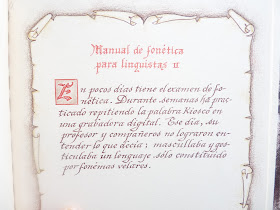 Manual de fonética
para linguistas II
En pocos días tiene el examen de fo-
nética. Durante semanas ha prac-
ticado repitiendo la palabra Kiosco en
una grabadora digital. Ese día, su
profesor y compañeros no lograron en-
tender lo que decía; mascullaba y ges-
ticulaba un lenguaje sólo constituido
por fonemas velares.